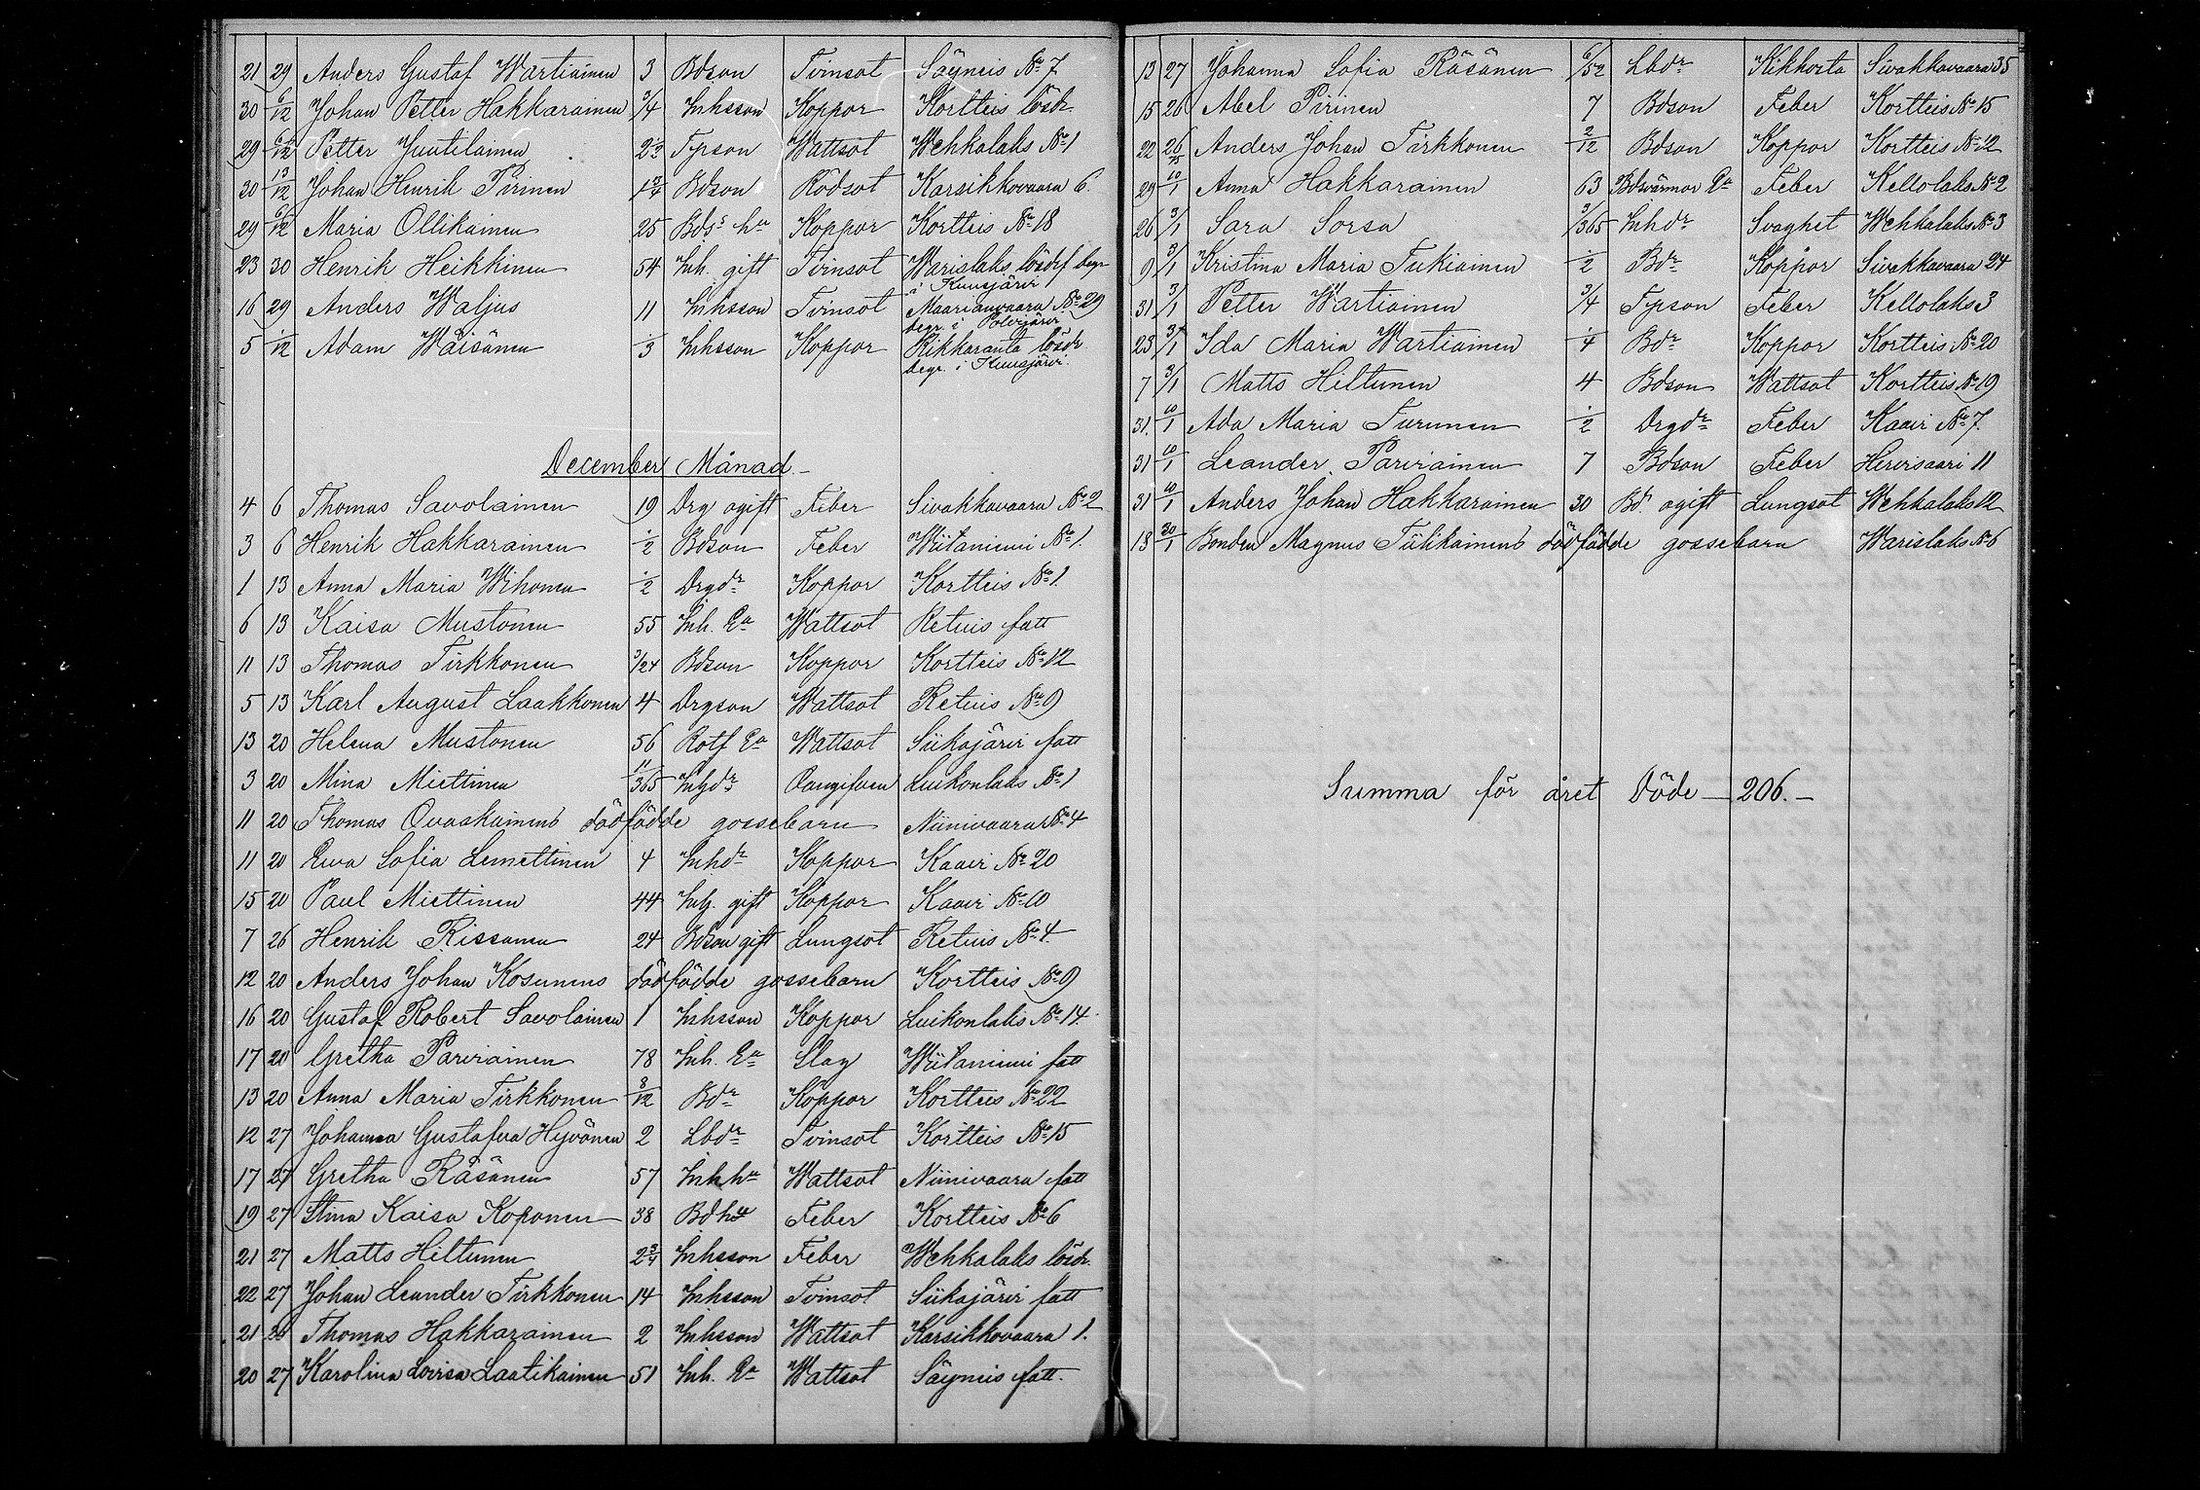 21 29 Anders Gustaf Wartiainen 3 Bdson Tvinsot Säyneis No 7
30 6/12 Johan Petter Hakkarainen 3/4 Inhsson Koppor Kortteis lösdr
29 6/12 Petter Juutilainen 2 1/2 Tpson Wattsot Wehkalaks No 1
30 13/12 Johan Henrik Pirinen 1 3/4 Bdson Rödsot Karsikkovaara 6.
29 6/12 Maria Ollikainen 25 Bds hu Koppor Kortteis No 18
23 30 Henrik Heikkinen 54 Inh. gift Tvinsot Warislaks lösdrf begr
i Kuusjärvi
16 29 Anders Waljus 11 Inhsson Tvinsot Maarianvaara No 29
begr. i Polvijärvi
5 /12 Adam Wäisänen 1/3 Inhsson Koppor Kikkaranta lösdr
begr. i Kuusjärvi.
December Månad.
4 6 Thomas Savolainen 19 Drg ogift Feber Sivakkavaara No 2
3 6 Henrik Hakkarainen 1/2 Bdson Feber Wiitaniemi No 1.
1 13 Anna Maria Wihonen 1/2 Drgdr Koppor Kortteis No 1.
6 13 Kaisa Mustonen 55 Inh. Ea Wattsot Retuis fatt
11 13 Thomas Tirkkonen 3/24 Bdson Koppor Kortteis No 12
5 13 Karl August Laakkonen 4 Drgson Wattsot Retuis No 9
13 20 Helena Mustonen 56 Rotf Ea Wattsot Siikajärvi fatt
3 20 Mina Miettinen 11/365 Inhdr Oangifven Luikonlaks No 1
11 20 Thomas Ovaskainens dödfödde gossebarn Niinivaara No 4
11 20 Ewa Sofia Lemettinen 4 Inhdr Koppor Kaavi No 20
15 20 Paul Miettinen 44 Inh. gift Koppor Kaavi No 10
7 26 Henrik Rissanen 24 Bdson gift Lungsot Retuis No 4.
12 20 Anders Johan Kosunens dödfödde gossebarn Kortteis No 9
16 20 Gustaf Robert Savolainen 1 Inhsson Koppor Luikonlaks No 14.
17 20 Gretha Parviainen 78 Inh. Ea Slag Wiitaniemi fatt
13 20 Anna Maria Tirkkonen 8/12 Bdr Koppor Kortteis No 22
12 27 Johanna Gustafva Hyvönen 2 Lbdr Tvinsot Kortteis No 15
17 27 Gretha Räsänen 57 Inh hu Wattsot Niinivaara fatt
19 27 Stina Kaisa Koponen 38 Bd hu Feber Kortteis No 6
21 27 Matts Hiltunen 2 3/4 Inhsson Feber Wehkalaks lösdr.
22 27 Johan Leander Tirkkonen 14 Inhsson Tvinsot Siikajärvi fatt
21 26 Thomas Hakkarainen 2 Inhsson Wattsot Karsikkovaara 1.
20 27 Karolina Lovisa Laatikainen 51 Inh. Ea Wattsot Säyneis fatt.
13 27 Johanna Sofia Räsänen 6/52 Lbdr Kikhosta Sivakkavaara 35
15 26 Abel Pirinen 7 Bdson Feber Kortteis No 15
22 26/75 Anders Johan Tirkkonen 2/12 Bdson Koppor Kortteis No 12
29 10/1 Anna Hakkarainen 63 Bdsvärmor Ea Feber Kellolaks No 2
26 3/1 Sara Sorsa 3/365 Inhdr Svaghet Wehkalaks No 3
9 3/1 Kristina Maria Tukiainen 1/2 Bdr Koppor Sivakkavaara 24
31 3/1 Petter Wartiainen 3/4 Tpson Feber Kellolaks 3
23 3/1 Ida Maria Wartiainen 1/4 Bdr Koppor Kortteis No 20
7 3/1 Matts Hiltunen 4 Bdson Wattsot Kortteis No 19
31. 10/1 Ada Maria Turunen 1/2 Drgdr Feber Kaavi No 7.
31 10/1 Leander Parviainen 7 Bdson Feber Hirvisaari 11
31 10/1 Anders Johan Hakkarainen 30 Bd. ogift Lungsot Wehkalaks 12
13 30/1 Bonden Magnus Tulikainens dödfödde gossebarn Warislaks No 6
Summa för året Döde — 206.—